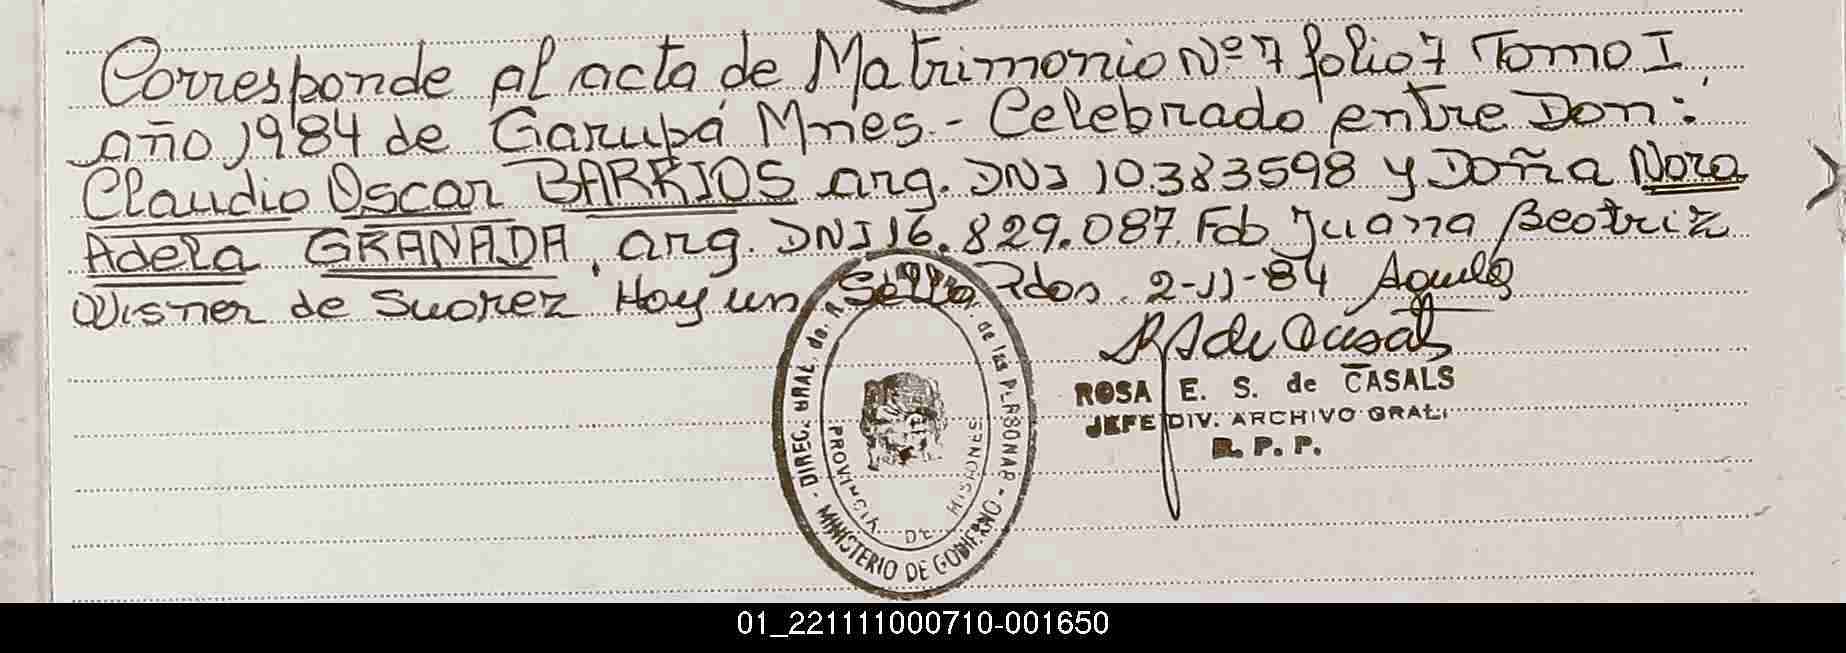 Corresponde al acta de Matrimonio Nº 7 folio 7 Tomo I,
año 1984 de Garupá Mnes.- Celebrado entre Don:
Claudio Oscar BARRIOS arg. DNI 10383598 y Doña Nora
Adela GRANADA, arg. DNI 16.829.087. Fdo Juana Beatriz
Wisner de Suarez Hay un Sello Pdas. 2-11-84
ROSA E. S. de CASALS
JEFE DIV. ARCHIVO GRAL.
R. P. P.
DIREC. GRAL. de de las PERSONAS - MINISTERIO DE GOBIERNO -
PROVINCIA DE MISIONES
01_221111000710-001650